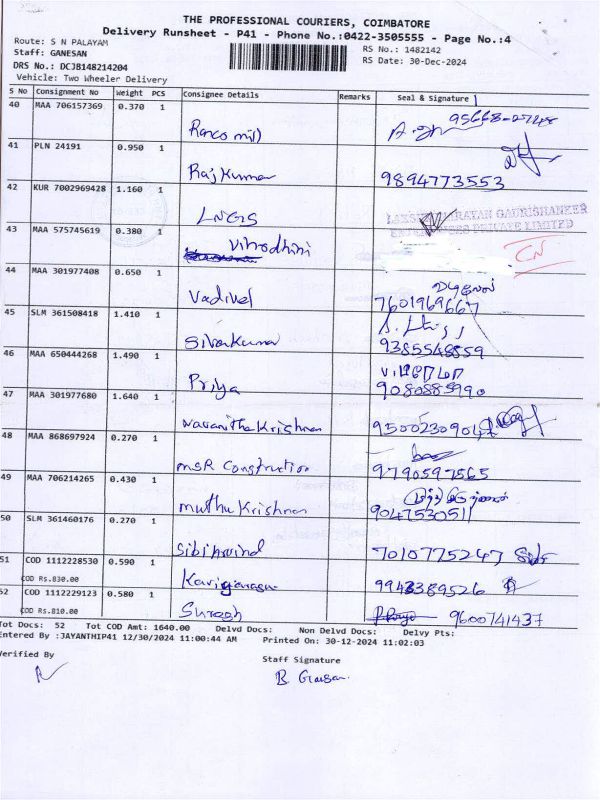 THE PROFESSIONAL COURIERS, COIMBATORE
Delivery Runsheet - P41 - Phone No.:0422-3505555 - Page No.:4
Route: S N PALAYAM
RS No.: 1482142
Staff: GANESAN
RS Date: 30-Dec-2024
DRS No.: DCJB148214204
Vehicle: Two Wheeler Delivery
S No Consignment No Weight PCS Consignee Details Remarks Seal & Signature
40 MAA 706157369 0.370 1
95668-
41 PLN 24191 0.950 1
Raj Kumar 9894773553
42 KUR 7002969428 1.160 1
LNGS
LAXSHMI NARAYAN GAURISHANKER
ENTERPRISES PRIVATE LIMITED
43 MAA 575745619 0.380 1
Vinodhini
CN
44 MAA 301977408 0.650 1
வடிவேல்
Vadivel 7601969667
45 SLM 361508418 1.410 1
Sivakumar 9385548859
46 MAA 650444268 1.490 1
Priya 9080885990
47 MAA 301977680 1.640 1
Navanitha Krishnan 9500230904
48 MAA 868697924 0.270 1
MSR Construction 9790597565
49 MAA 706214265 0.430 1
Muthu Krishnan 9047530511
50 SLM 361460176 0.270 1
Sibi Arvind 7010775247
51 COD 1112228530 0.590 1
COD Rs.830.00 Kaviyarasu 9943389526
52 COD 1112229123 0.580 1
COD Rs.810.00 Suresh 9600741437
Tot Docs: 52 Tot COD Amt: 1640.00 Delvd Docs: Non Delvd Docs: Delvy Pts:
Entered By :JAYANTHIP41 12/30/2024 11:00:44 AM Printed On: 30-12-2024 11:02:03
Verified By
Staff Signature